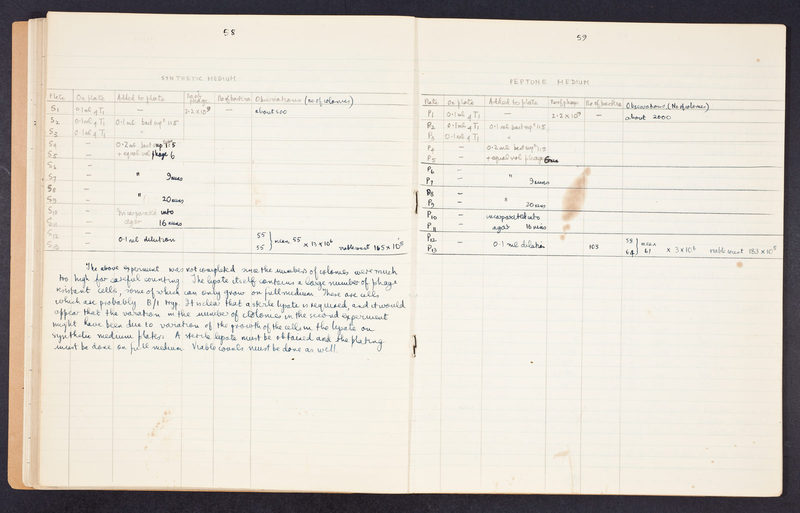 58
SYNTHETIC MEDIUM
Plate On plate Added to plate No of phage No of bacteria Observations (No of colonies)
S1 0.1ml of T1 — 2.2 x 10⁹ — about 500
S2 0.1ml of T1 0.1 ml bact susp⁺ 1:5
S3 0.1ml of T1 "
S4 — 0.2 ml bact susp⁺ 1:5
S5 — + equal vol phage 6
S6 —
S7 — " 9 mins
S8 —
S9 — " 20 mins
S10 — Incorporated into
S11 — agar 16 mins
S12 — 55
S13 0.1 ml dilution 55 } mean 55 x 10⁶ viable count 165 x 10
The above experiment was not completed since the numbers of colonies were much
too high for careful counting. The lysate itself contains a large number of phage
resistant cells, some of which can only grow on full medium. These are cells
which are probably B/1 tryp. It is clear that a sterile lysate is required, and it would
appear that the variation in the number of colonies in the second experiment
might have been due to variation of the growth of the cells in the lysate on
synthetic medium plates. A sterile lysate must be obtained and the plating
must be done on full medium. Viable counts must be done as well.
59
PEPTONE MEDIUM
Plate On plate Added to plate No of phage No of bacteria Observations (No of colonies)
P1 0.1ml of T1 — 2.2 x 10⁹ — about 2000
P2 0.1ml of T1 0.1 ml bact susp⁺ 1:5
P3 0.1ml of T1 "
P4 — 0.2 ml bact susp⁺ 1:5
P5 — + equal vol phage 6 mins
P6 —
P7 — " 9 mins
P8 —
P9 — " 20 mins
P10 — incorporated into
P11 — agar 16 mins
P12 — 58
P13 0.1 ml dilution 103 64 } mean 61 x 3 x 10⁶ viable count 183 x 10⁵